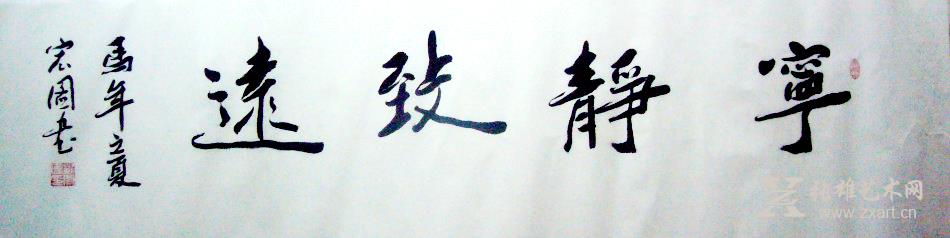 寧靜致遠
馬年之夏
宏图书
张雄艺术网
www.zxart.cn